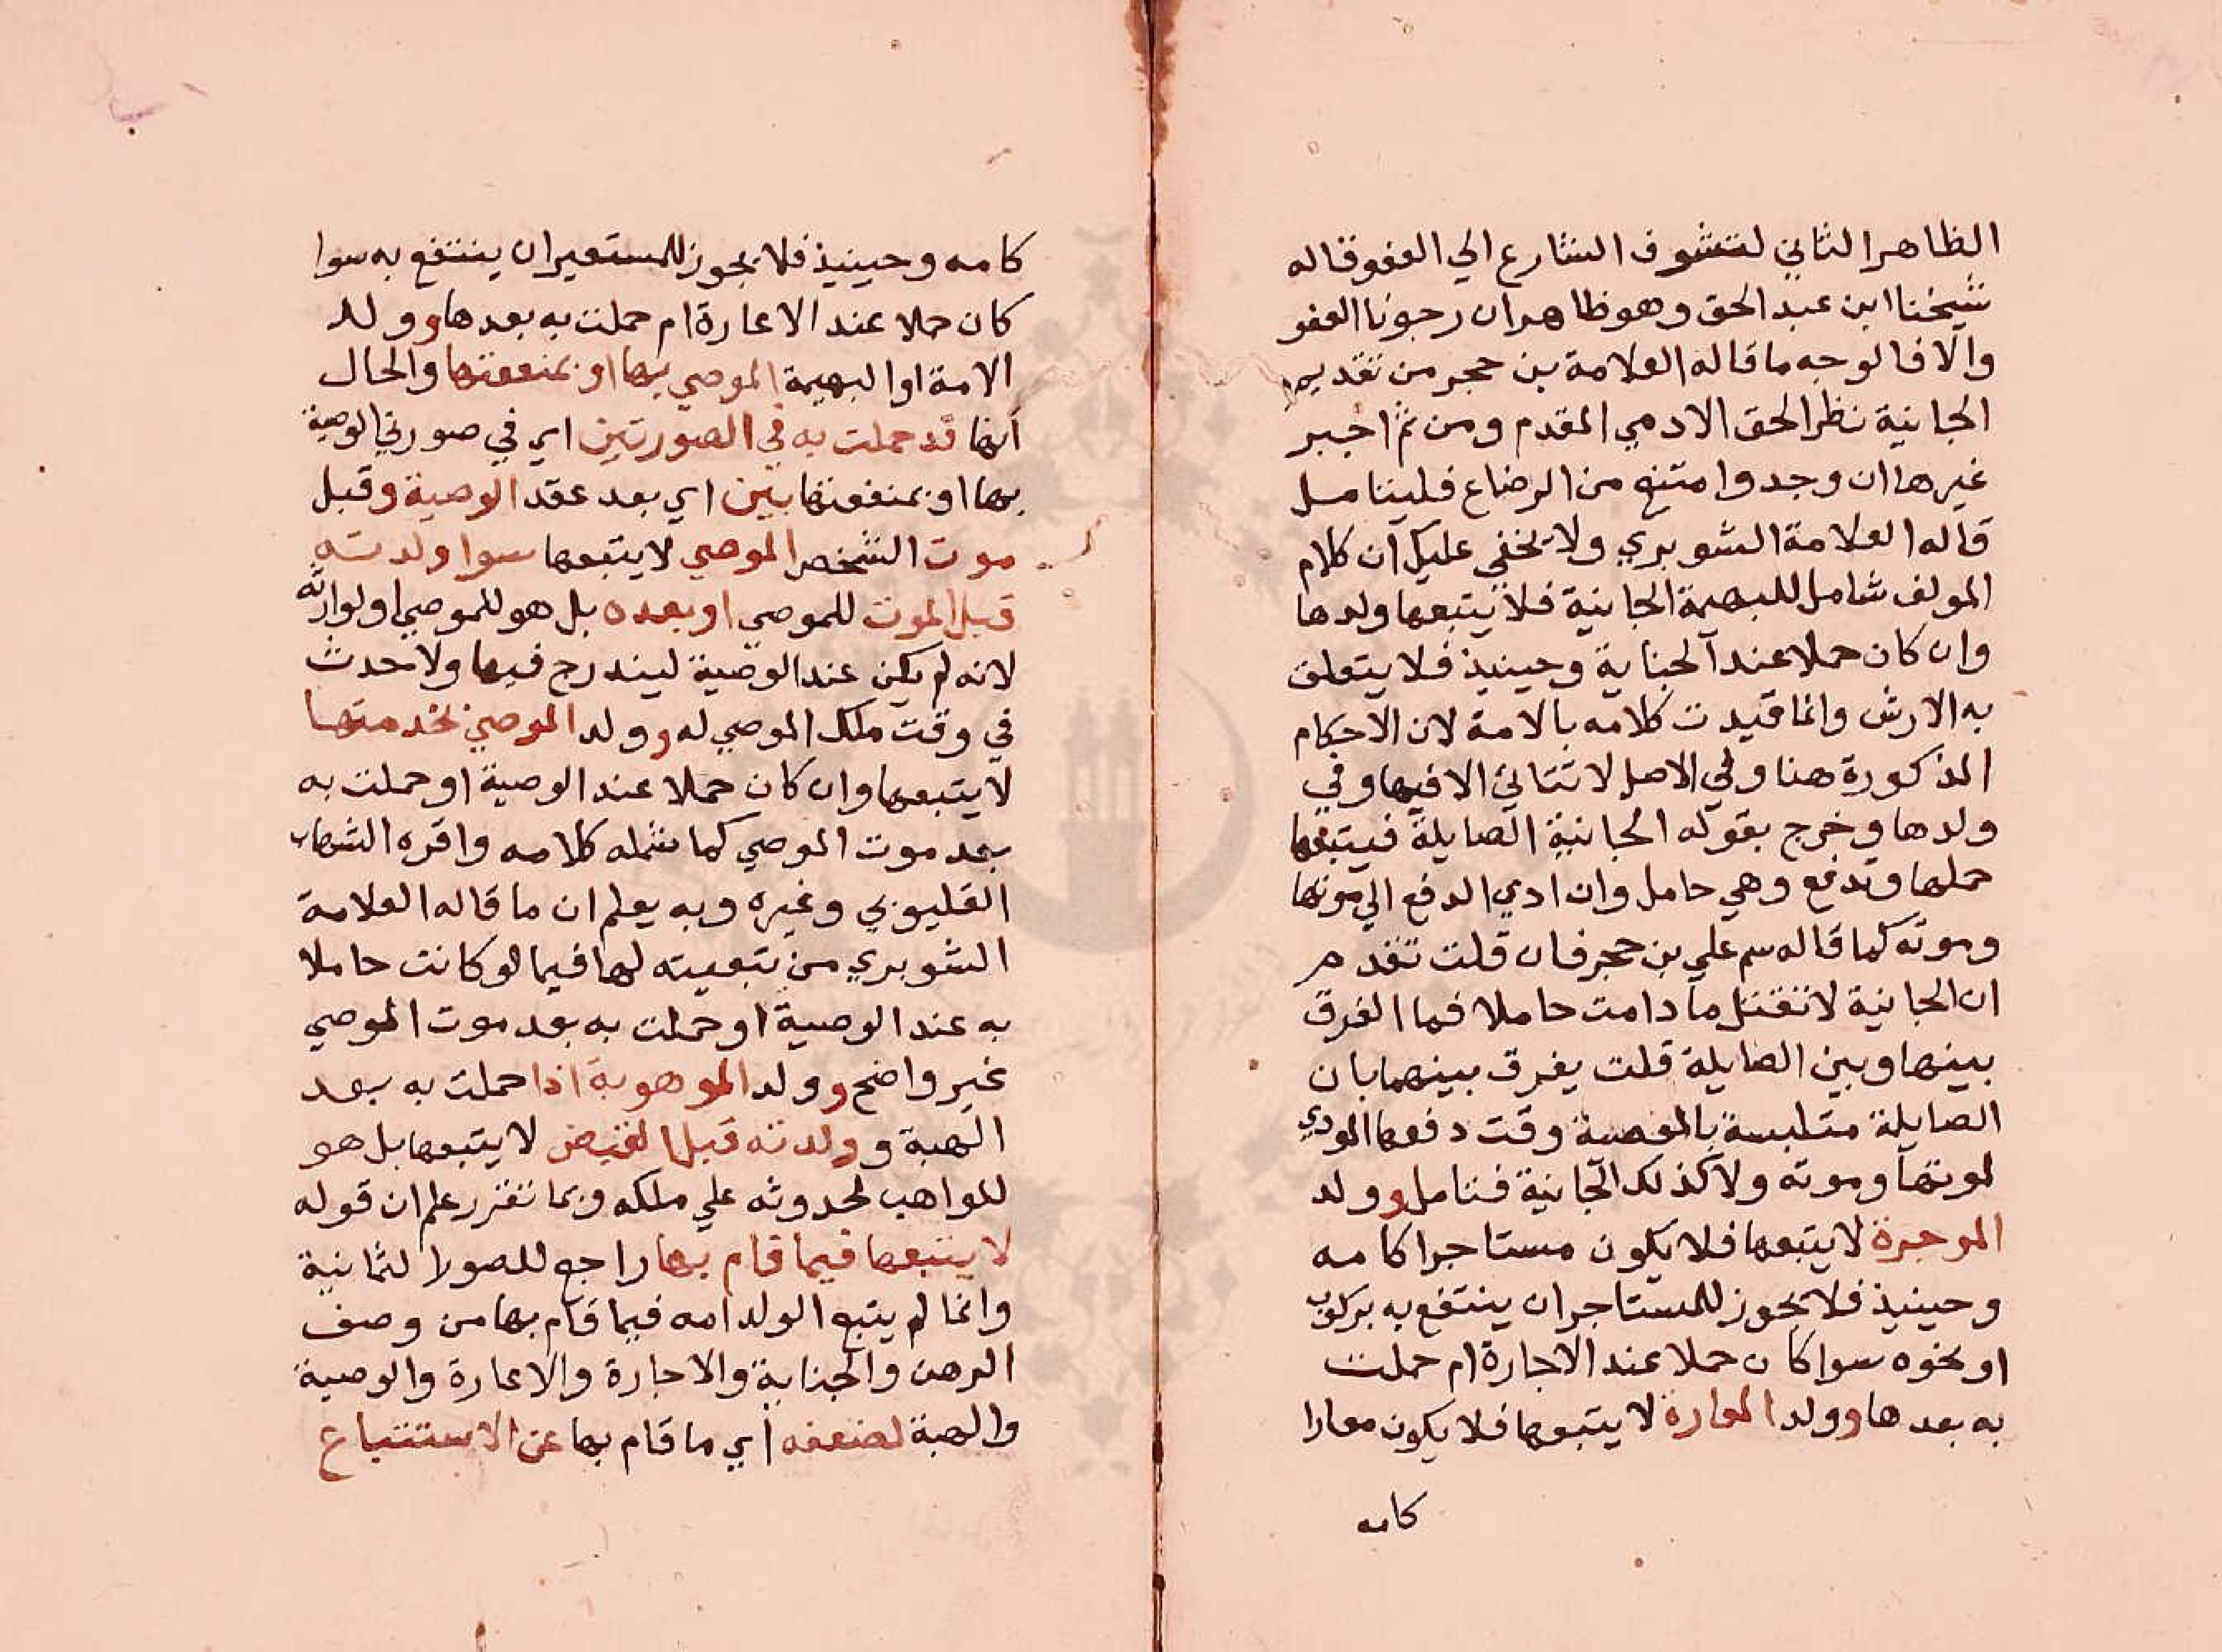 الظاهر الثاني لتشوف الشارع الي العفو قاله
شيخنا ابن عبد الحق وهو ظاهر ان رجونا العفو
والا فالوجه ما قاله العلامة بن حجر من تقديم
الجانية نظرا لحق الادمي المقدم ومن ثم اجبر
غيرها ان وجد وامتنع من الرضاع فليتامل
قاله العلامة الشوبري ولا يخفي عليك ان كلام
المولف شامل للبهيمة الجانية فلا يتبعها ولدها
وان كان حملا عند الجناية وحينيذ فلا يتعلق
به الارش وانما قيدت كلامه بالامة لان الاحكام
المذكورة هنا وفي الاصل لا تتاتي الا فيها وفي
ولدها وخرج بقوله الجانية الصايلة فيتبعها
حملها وتدفع وهي حامل وان ادي الدفع الي موتها
وموته كما قاله سم علي بن حجر فان قلت تقدم
ان الجانية لا تقتل ما دامت حاملا فما الفرق
بينها وبين الصايلة قلت يفرق بينهما بان
الصايلة متلبسة بالمعصية وقت دفعها المودي
لموتها وموته ولا كذلك الجانية فتامل وولد
الموجرة لا يتبعها فلا يكون مستاجرا كامه
وحينيذ فلا يجوز للمستاجر ان ينتفع به بركوب
او نحوه سوا كان حملا عند الاجارة ام حملت
به بعدها وولد المعارة لا يتبعها فلا يكون معارا
كامه
كامه وحينيذ فلا يجوز للمستعير ان ينتفع به سوا
كان حملا عند الاعارة ام حملت به بعدها وولد
الامة او البهيمة الموصي بها او بمنفعتها والحال
أنها قد حملت به في الصورتين اي في صورتي الوصية
بها او بمنفعتها بين اي بعد عقد الوصية وقبل
موت الشخص الموصي لا يتبعها سوا ولدته
قبل الموت للموصي او بعده بل هو للموصي او لوارثه
لانه لم يكن عند الوصية ليندرج فيها ولا حدث
في وقت ملك الموصي له وولد الموصي بخدمتها
لا يتبعها وان كان حملا عند الوصية او حملت به
بعد موت الموصي كما شمله كلامه واقره الشهاب
القليوبي وغيره وبه يعلم ان ما قاله العلامة
الشوبري من تبعيته لها فيما لو كانت حاملا
به عند الوصية او حملت به بعد موت الموصي
غير واضح وولد الموهوبة اذا حملت به بعد
الهبة و ولدته قبل القبض لا يتبعها بل هو
للواهب لحدوثه علي ملكه وبما تقرر علم ان قوله
لا يتبعها فيما قام بها راجع للصور الثمانية
وانما لم يتبع الولد امه فيما قام بها من وصف
الرهن والجناية والاجارة والاعارة والوصية
والهبة لضعفه أي ما قام بها عن الاستتباع